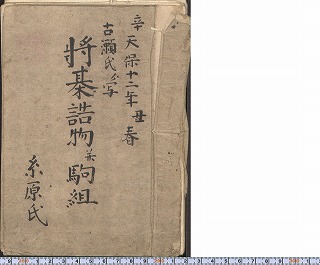 辛
天保十二年丑春
古瀬氏ゟ写
將棊詰物并駒組
糸原氏